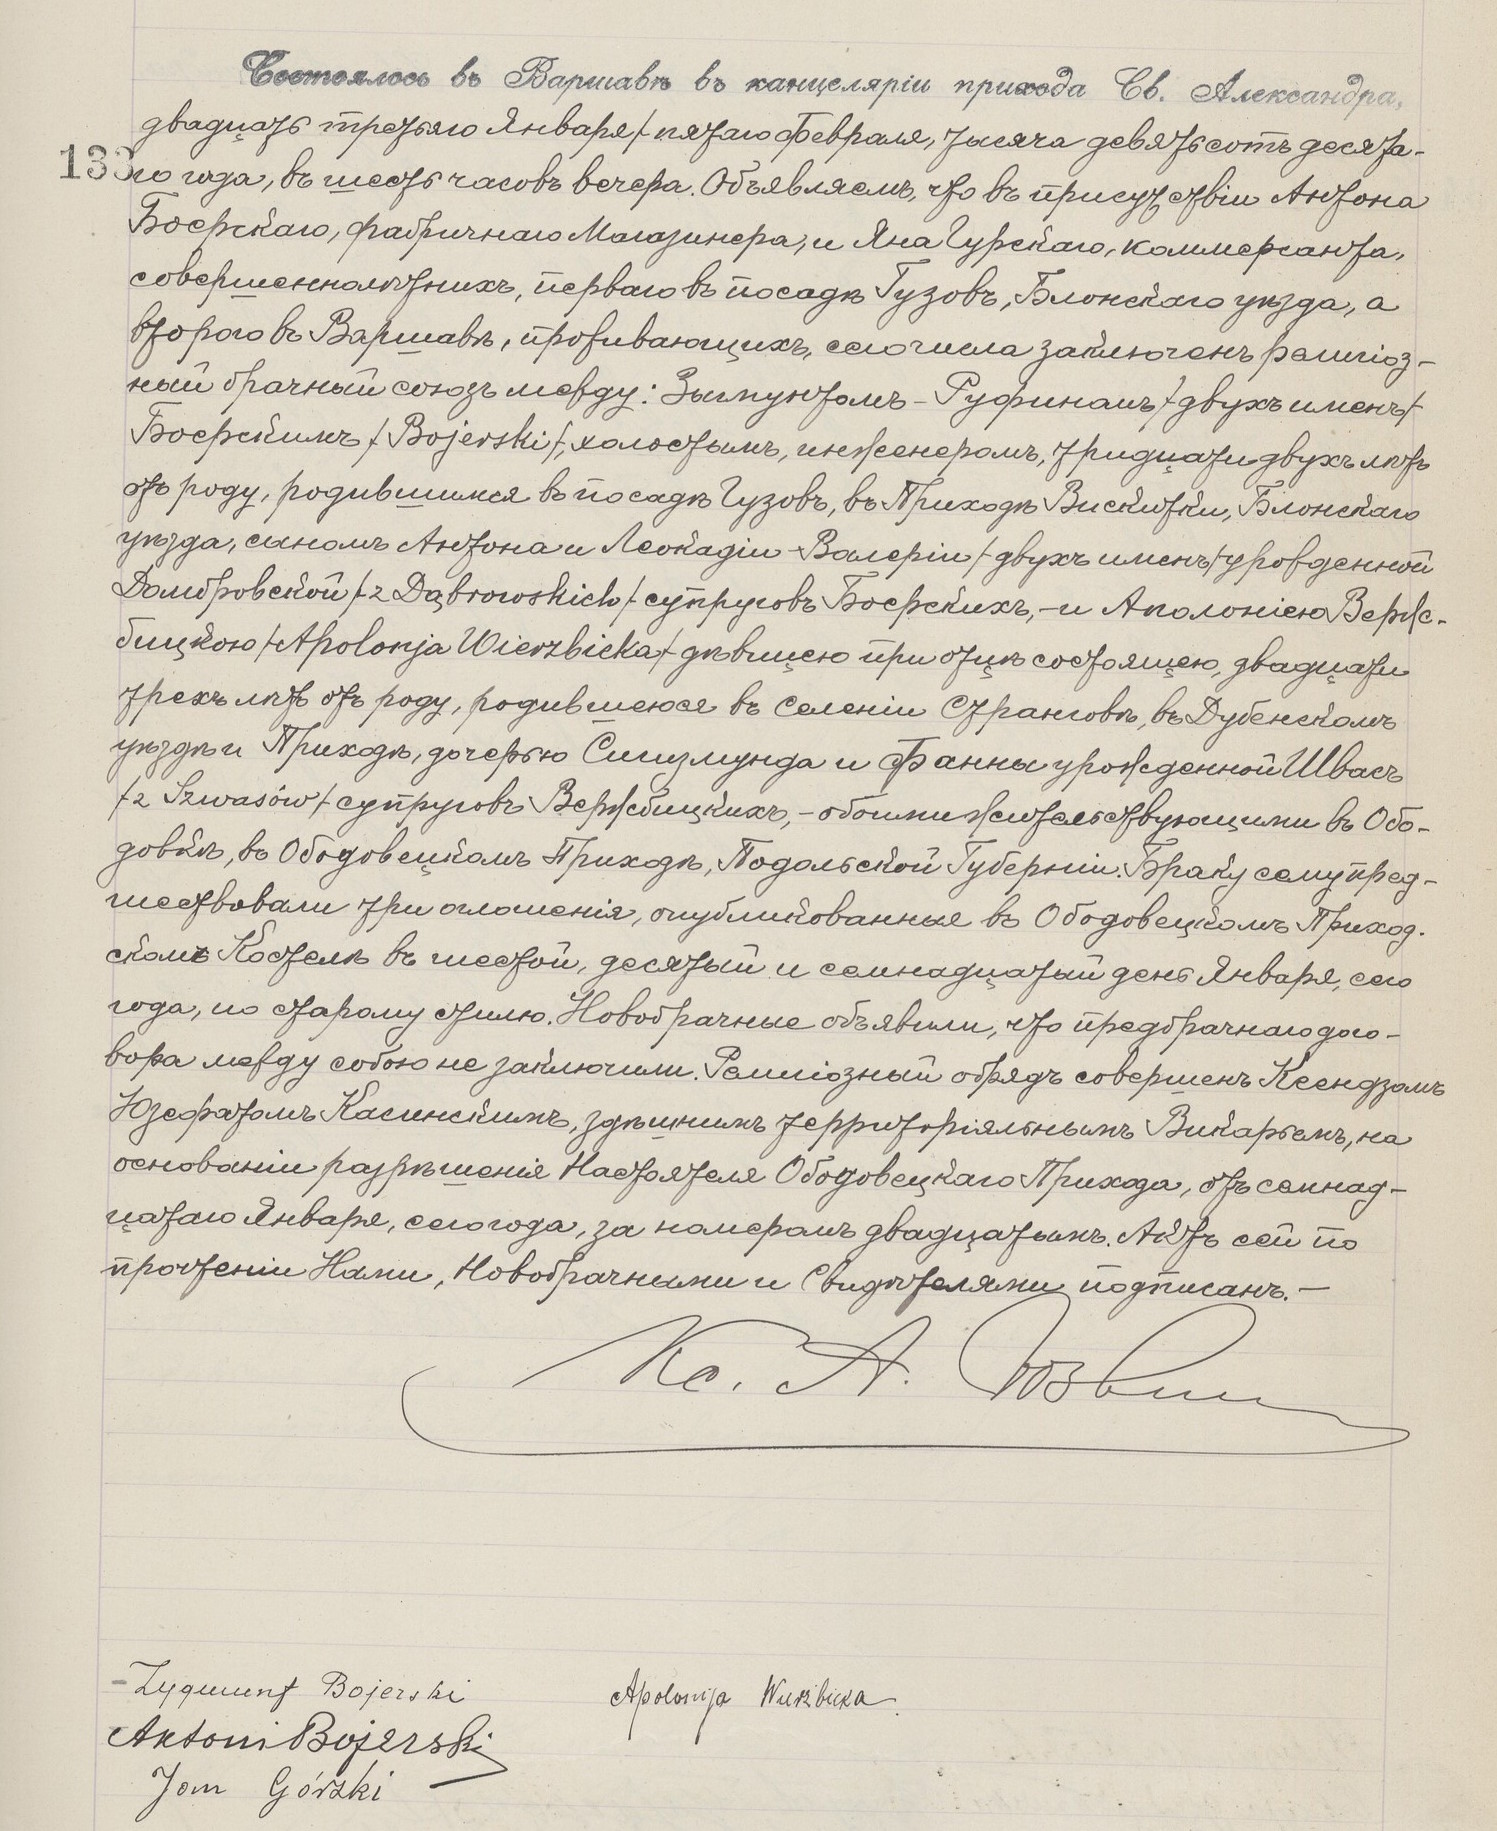 Состоялось въ Варшавѣ въ канцеляріи прихода Св. Александра,
двадцать третьяго Января / пятаго Февраля, тысяча девятьсотъ десята-
133
го года, въ шесть часовъ вечера. Объявляемъ, что въ присутствіи Антона
Боерскаго, фабричнаго Магазинера, и Яна Гурскаго, коммерсанта,
совершеннолѣтнихъ, перваго въ посадѣ Гузовъ, Блонскаго уѣзда, а
втораго въ Варшавѣ, проживающихъ, сего числа заключенъ религіоз-
ный брачный союзъ между: Зыгмунтомъ-Руфиномъ / двухъ именъ /
Боерскимъ / Bojerski /, холостымъ, инженеромъ, тридцати двухъ лѣтъ
отъ роду, родившимся въ посадѣ Гузовъ, въ Приходѣ Вискитки, Блонскаго
уѣзда, сыномъ Антона и Леокадіи-Валеріи / двухъ именъ / урожденной
Домбровской / z Dąbrowskich / супруговъ Боерскихъ, - и Аполоніею Верж-
бицкою / Apolonja Wierzbicka / дѣвицею при отцѣ состоящею, двадцати
трехъ лѣтъ отъ роду, родившеюся въ селеніи Странговѣ, въ Дубенскомъ
уѣздѣ и Приходѣ, дочерью Сигизмунда и Фанны урожденной Швасъ
/ z Szwasów / супруговъ Вержбицкихъ, - обоими жительствующими въ Обо-
довкѣ, въ Ободовецкомъ Приходѣ, Подольской Губерніи. Браку сему пред-
шествовали три оглашенія, опубликованныя въ Ободовецкомъ Приход-
скомъ Костелѣ въ шестой, десятый и семнадцатый день Января, сего
года, по старому стилю. Новобрачные объявили, что предбрачнаго дого-
вора между собою не заключили. Религіозный обрядъ совершенъ Ксендзомъ
Юзефатомъ Касинскимъ, здѣшнимъ территоріяльнымъ Викарьемъ, на
основаніи разрѣшенія Настоятеля Ободовецкаго Прихода, отъ семнад-
цатаго Января, сего года, за номеромъ двадцатымъ. Актъ сей по
прочтеніи Нами, Новобрачными и Свидѣтелями подписанъ. -
Кс. А.
Zygmunt Bojerski
Apolonija Wierzbicka
Antoni Bojerski
Jan Górski